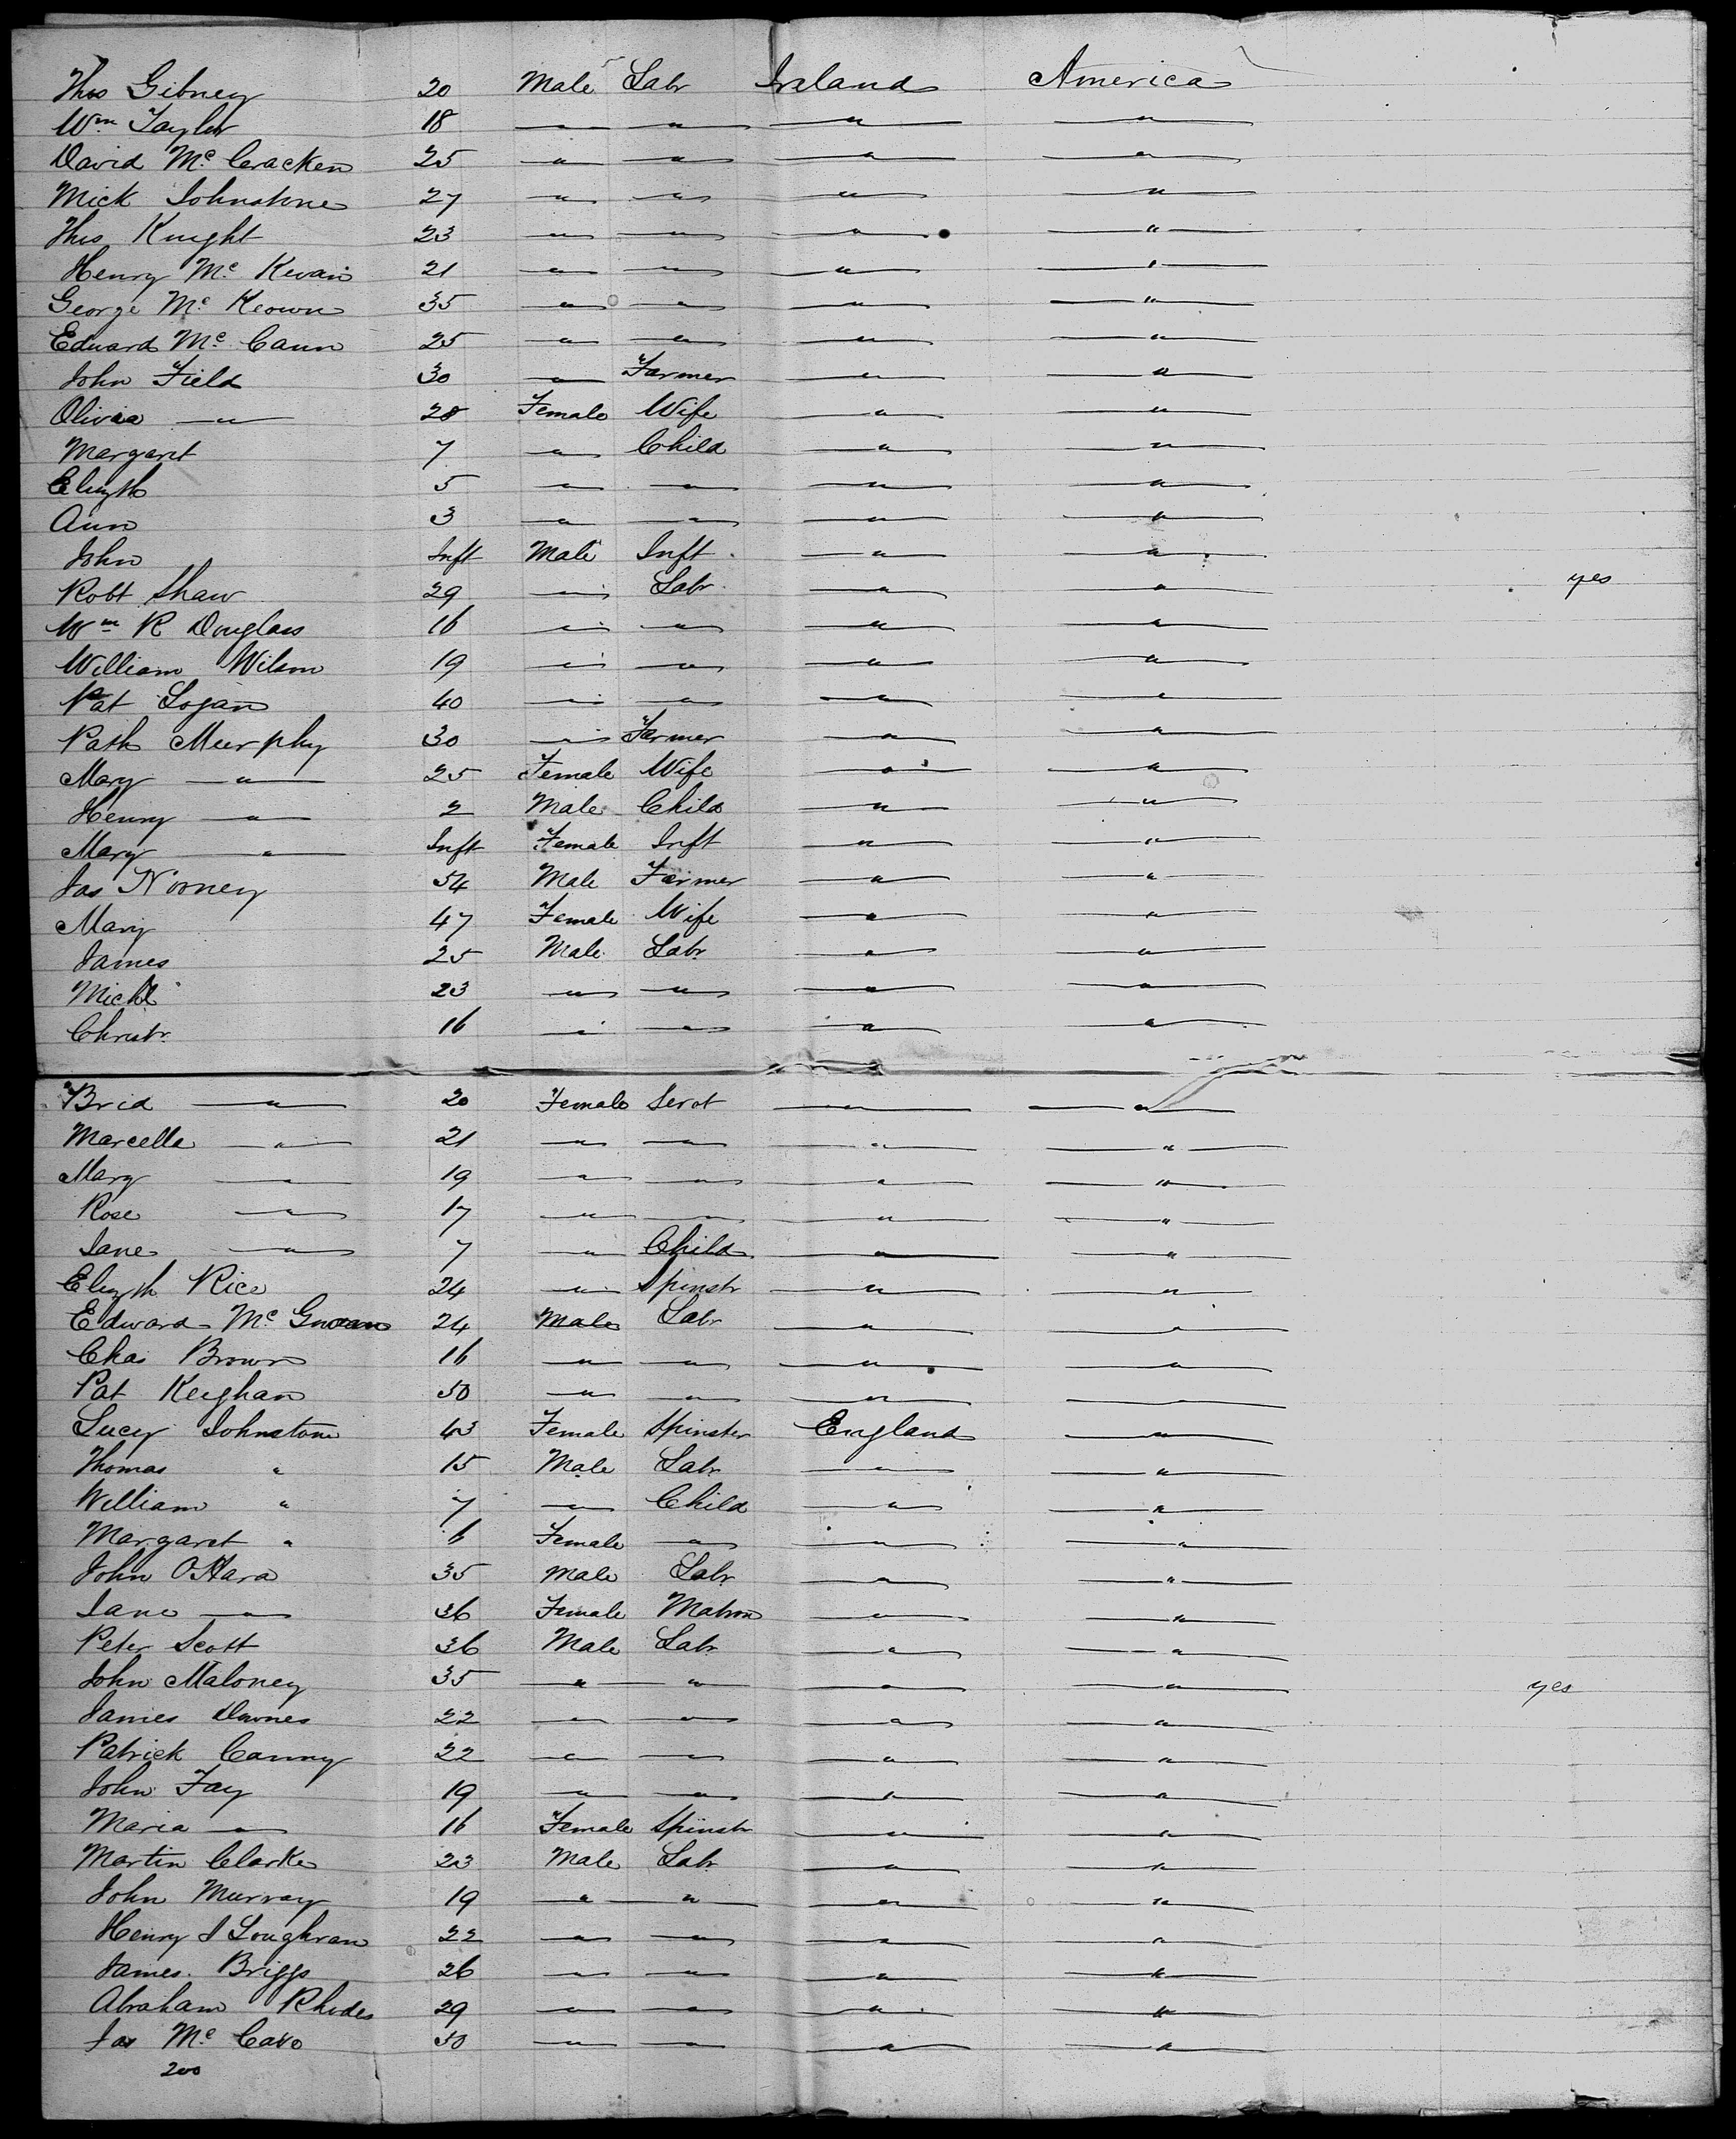 Thos Gibney 20 Male Labr Ireland America
Wm Taylor 18 " " " "
David Mc Cracken 25 " " " "
Mick Johnstone 27 " " " "
Thos Knight 23 " " " "
Henry Mc Kevain 21 " " " "
George Mc Keown 35 " " " "
Edward Mc Cann 25 " " " "
John Field 30 " Farmer " "
Olivia " 28 Female Wife " "
Margaret 7 " Child " "
Elizth 5 " " " "
Ann 3 " " " "
John Inft Male Inft " "
Robt Shaw 29 " Labr " " yes
Wm R Douglass 16 " " " "
William Wilson 19 " " " "
Pat Logan 40 " " " "
Patk Murphy 30 " Farmer " "
Mary " 25 Female Wife " "
Henry " 2 Male Child " "
Mary " Inft Female Inft " "
Jas Norney 54 Male Farmer " "
Mary 47 Female Wife " "
James 25 Male Labr " "
Michl 23 " " " "
Christr 16 " " " "
Brid " 20 Female Servt " "
Marcella " 21 " " " "
Mary " 19 " " " "
Rose " 17 " " " "
Jane " 7 " Child " "
Elizth Rice 24 " Spinstr " "
Edward Mc 24 Male Labr " "
Chas Brown 16 " " " "
Pat Keighan 50 " " " "
Lucy Johnstone 43 Female Spinster England "
Thomas " 15 Male Labr " "
William " 7 " Child " "
Margaret " 6 Female " " "
John OHara 35 Male Labr " "
Jane " 36 Female Matron " "
Peter Scott 36 Male Labr " "
John Maloney 35 " " " " yes
James Downes 22 " " " "
Patrick Canny 22 " " " "
John Fay 19 " " " "
Maria " 16 Female Spinstr " "
Martin Clarke 23 Male Labr " "
John Murray 19 " " " "
Henry J Loughran 22 " " " "
James Briggs 26 " " " "
Abraham Rhodes 29 " " " "
Jas Mc Cabe 50 " " " "
200